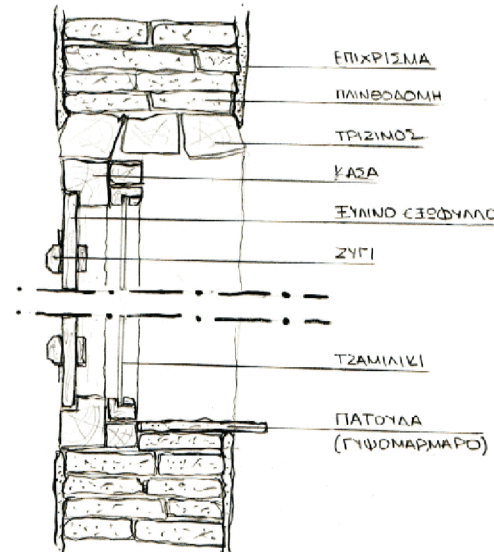 ΕΠΙΧΡΙΣΜΑ
ΠΛΙΝΘΟΔΟΜΗ
ΤΡΙΖΙΜΟΣ
ΚΑΣΑ
ΞΥΛΙΝΟ ΕΞΩΦΥΛΛΟ
ΖΥΓΙ
ΤΖΑΜΙΛΙΚΙ
ΠΑΤΟΥΛΑ
(ΓΥΨΟΜΑΡΜΑΡΟ)